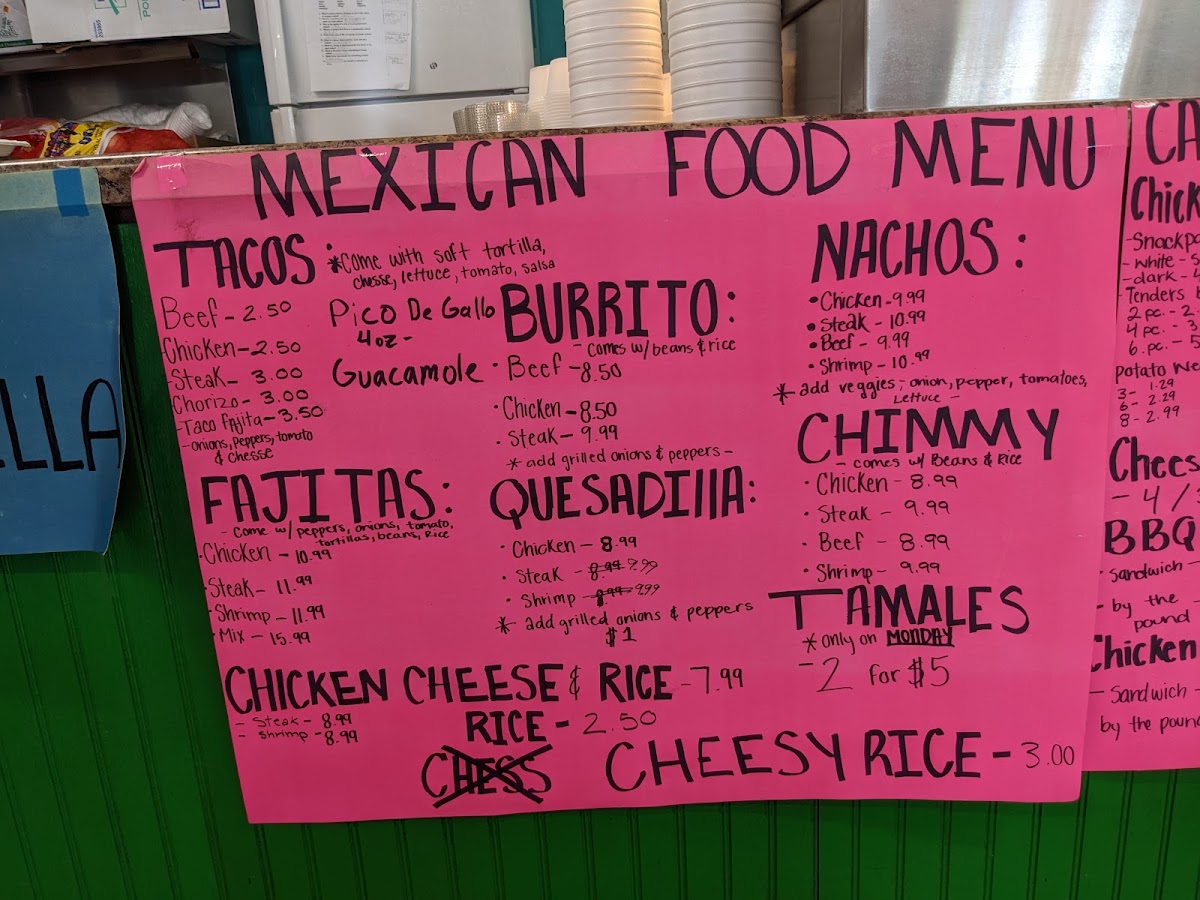 MEXICAN FOOD MENU
TACOS
*Come with soft tortilla,
chesse, lettuce, tomato, salsa
Beef - 2.50
Chicken - 2.50
Steak - 3.00
Chorizo - 3.00
-Taco fajita - 3.50
-onions, peppers, tomato
& chesse
Pico De Gallo
4oz -
Guacamole
BURRITO:
- comes w/beans & rice
• Beef - 8.50
• Chicken - 8.50
• Steak - 9.99
* add grilled onions & peppers -
NACHOS:
• Chicken - 9.99
• Steak - 10.99
• Beef - 9.99
• Shrimp - 10.99
* add veggies; onion, pepper, tomatoes,
Lettuce -
FAJITAS:
- Come w/ peppers, onions, tomato,
tortillas, beans, Rice
• Chicken - 10.99
• Steak - 11.99
• Shrimp - 11.99
• Mix - 15.99
QUESADIllA:
• Chicken - 8.99
• Steak - 8.99 9.99
• Shrimp - 8.99 9.99
* add grilled onions & peppers
$1
CHIMMY
- comes w/ Beans & Rice
• Chicken - 8.99
• Steak - 9.99
• Beef - 8.99
• Shrimp - 9.99
TAMALES
* only on MONDAY
- 2 for $5
CHICKEN CHEESE & RICE - 7.99
- Steak - 8.99
- Shrimp - 8.99
RICE - 2.50
CHESS
CHEESY RICE - 3.00
LLA
CA
Chick
-Snackpa
- white - s
- dark - 4
Tenders
2 pc. - 2
4 pc. - 3
6. pc. - 5
Potato We
3 - 1.29
6 - 2.29
8 - 2.99
Chees
- 4 /
BBQ
• Sandwich -
- by the
pound
Chicken
- Sandwich -
by the poun